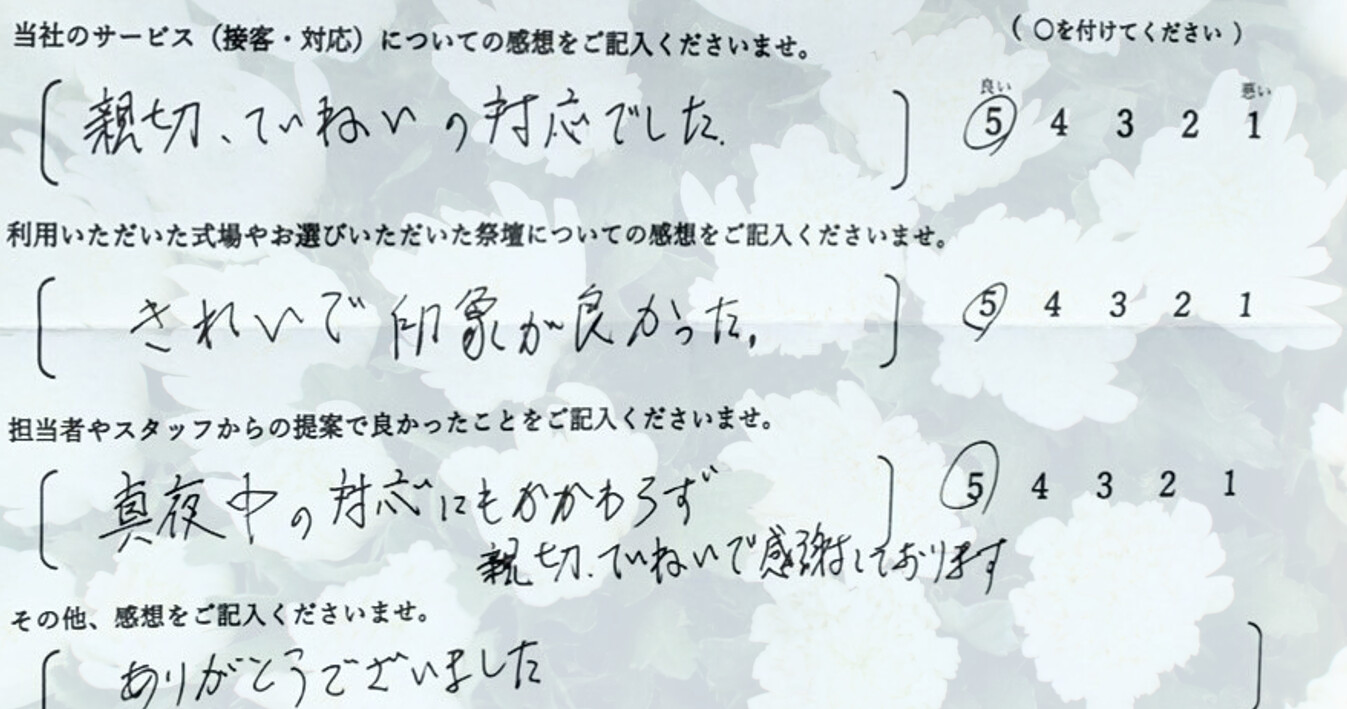 当社のサービス（接客・対応）についての感想をご記入くださいませ。
（ ○を付けてください ）
良い 悪い
親切、ていねいの対応でした.
5 4 3 2 1
利用いただいた式場やお選びいただいた祭壇についての感想をご記入くださいませ。
きれいで印象が良かった。
5 4 3 2 1
担当者やスタッフからの提案で良かったことをご記入くださいませ。
真夜中の対応にもかかわらず
5 4 3 2 1
親切、ていねいで感謝しております
その他、感想をご記入くださいませ。
ありがとうございました